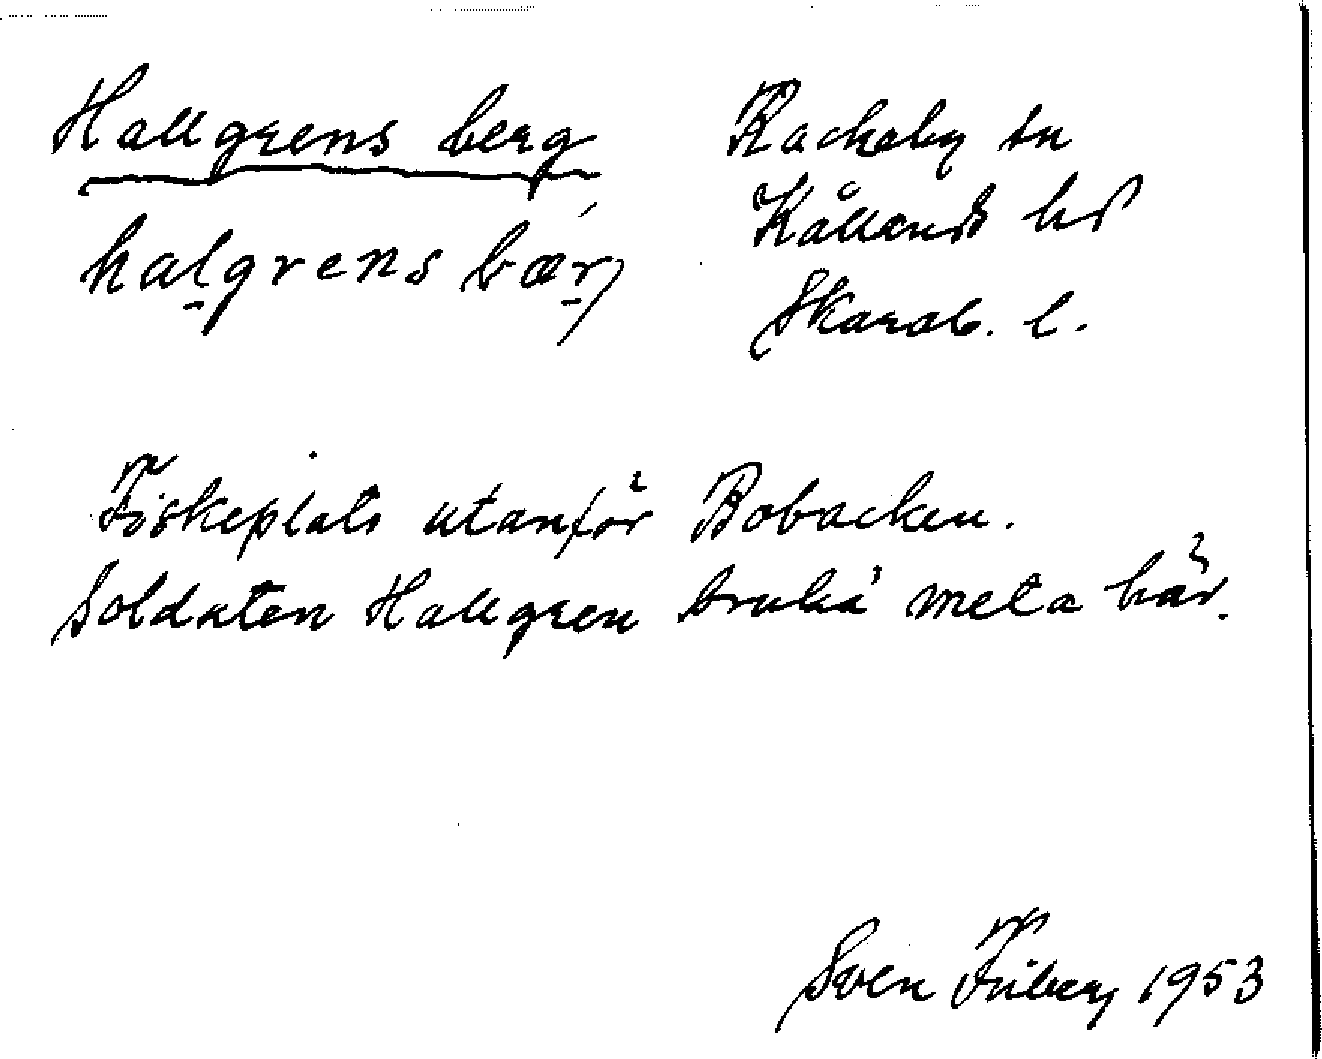 Hallgrens berg
halgrens bærj
Rackeby sn
Kållands hd
Skarab. l.
Fiskeplats utanför Bobacken.
Soldaten Hallgren bruka' meta här.
Sven Friberg 1953